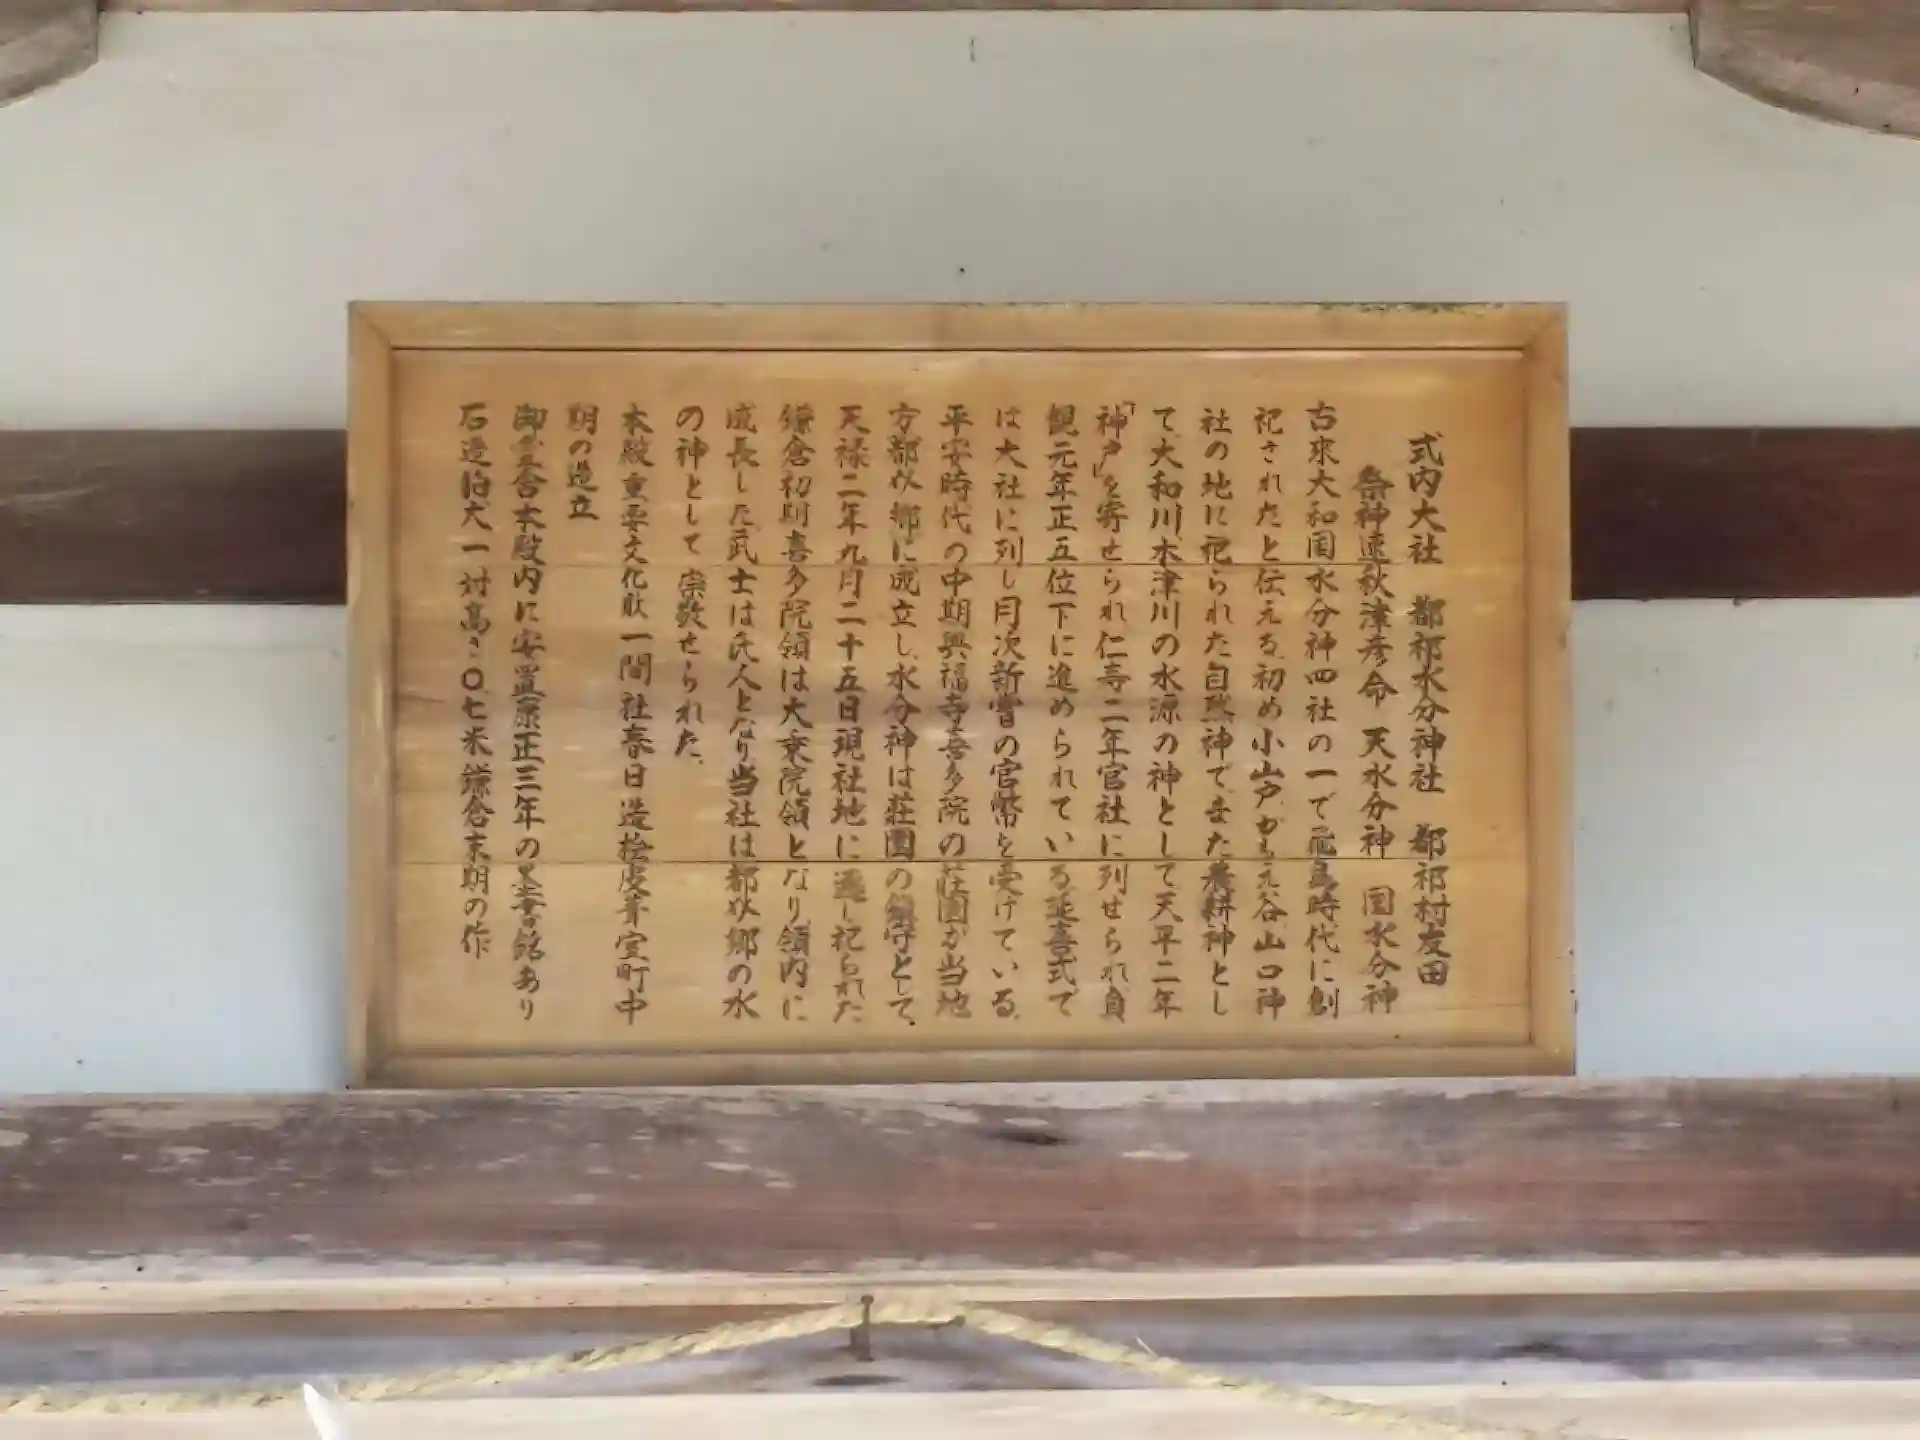 式内大社　都祁水分神社　都祁村友田
祭神速秋津彦命　天水分神　国水分神
古来大和国水分神四社の一で飛鳥時代に創
祀されたと伝える、初め小山戸、かもえ谷、山口神
社の地に祀られた自然神で、また農耕神とし
て、大和川木津川の水源の神として天平二年
「神戸」を寄せられ仁寿二年官社に列せられ貞
観元年正五位下に進められている延喜式で
は大社に列し月次新嘗の官幣を受けている。
平安時代の中期興福寺喜多院の荘園が当地
方都介郷に成立し、水分神は荘園の鎮守として、
天禄二年九月二十五日現社地に遷し祀られた
鎌倉初期喜多院領は大乗院領となり領内に
成長した武士は氏人となり当社は都介郷の水
の神として崇敬せられた、
本殿重要文化財一間社春日造桧皮葺室町中
期の造立
御　　本殿内に安置康正三年の墨書銘あり
石造狛犬一対高さ〇、七米鎌倉末期の作